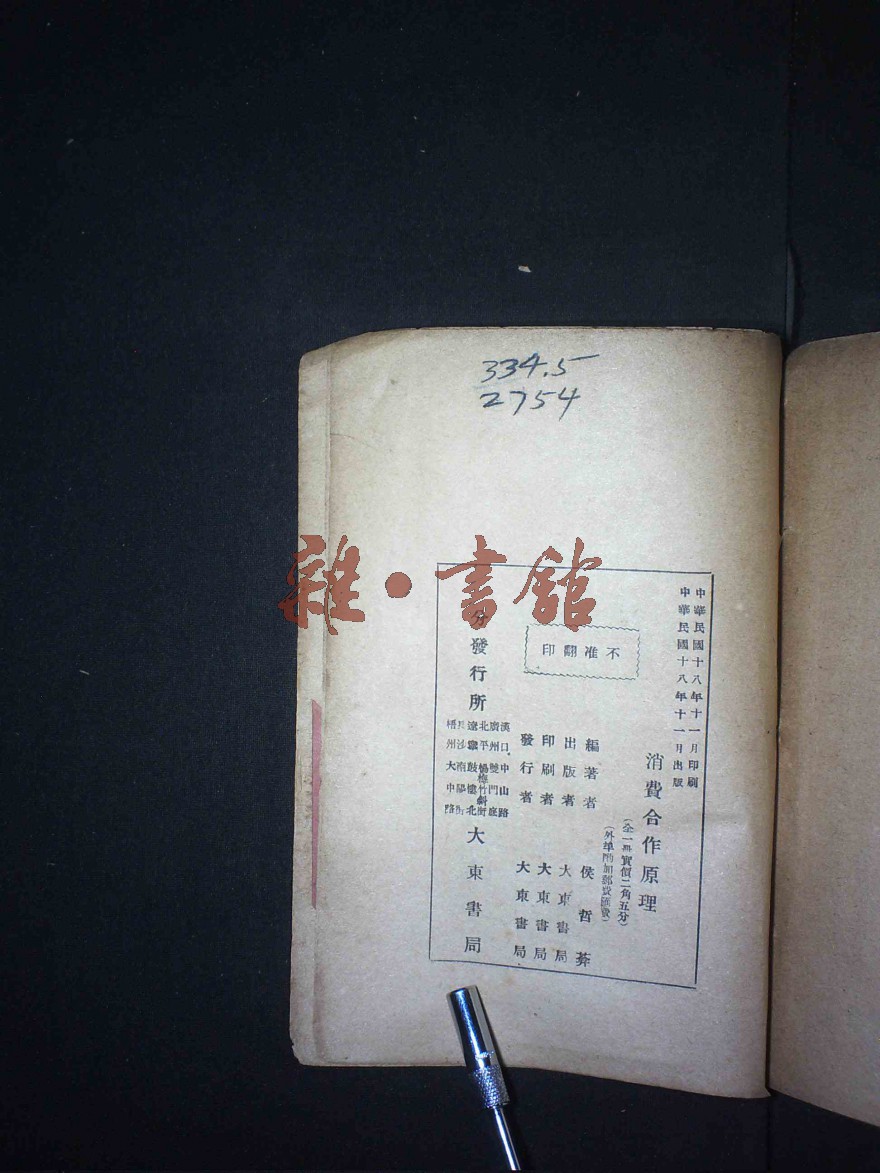 334.5
2754
雜·書館
中華民國十八年十一月印刷
中華民國十八年十一月出版
消費合作原理
(全一冊實價二角五分)
(外埠酌加郵費匯費)
不准翻印
編著者 侯哲葊
出版者 大東書局
印刷者 大東書局
發行者 大東書局
分發行所 大東書局
漢口 中山路
廣州 雙門底
北平 楊梅竹斜街
遼寧 鼓樓北
長沙 南陽街
梧州 大中路